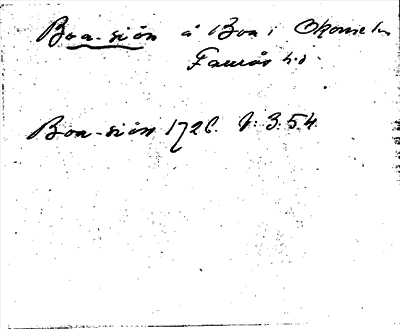 Boa-siön å Boa i Okome sn
Faurås hd.
Boa-siön 1726. J: 3:54.